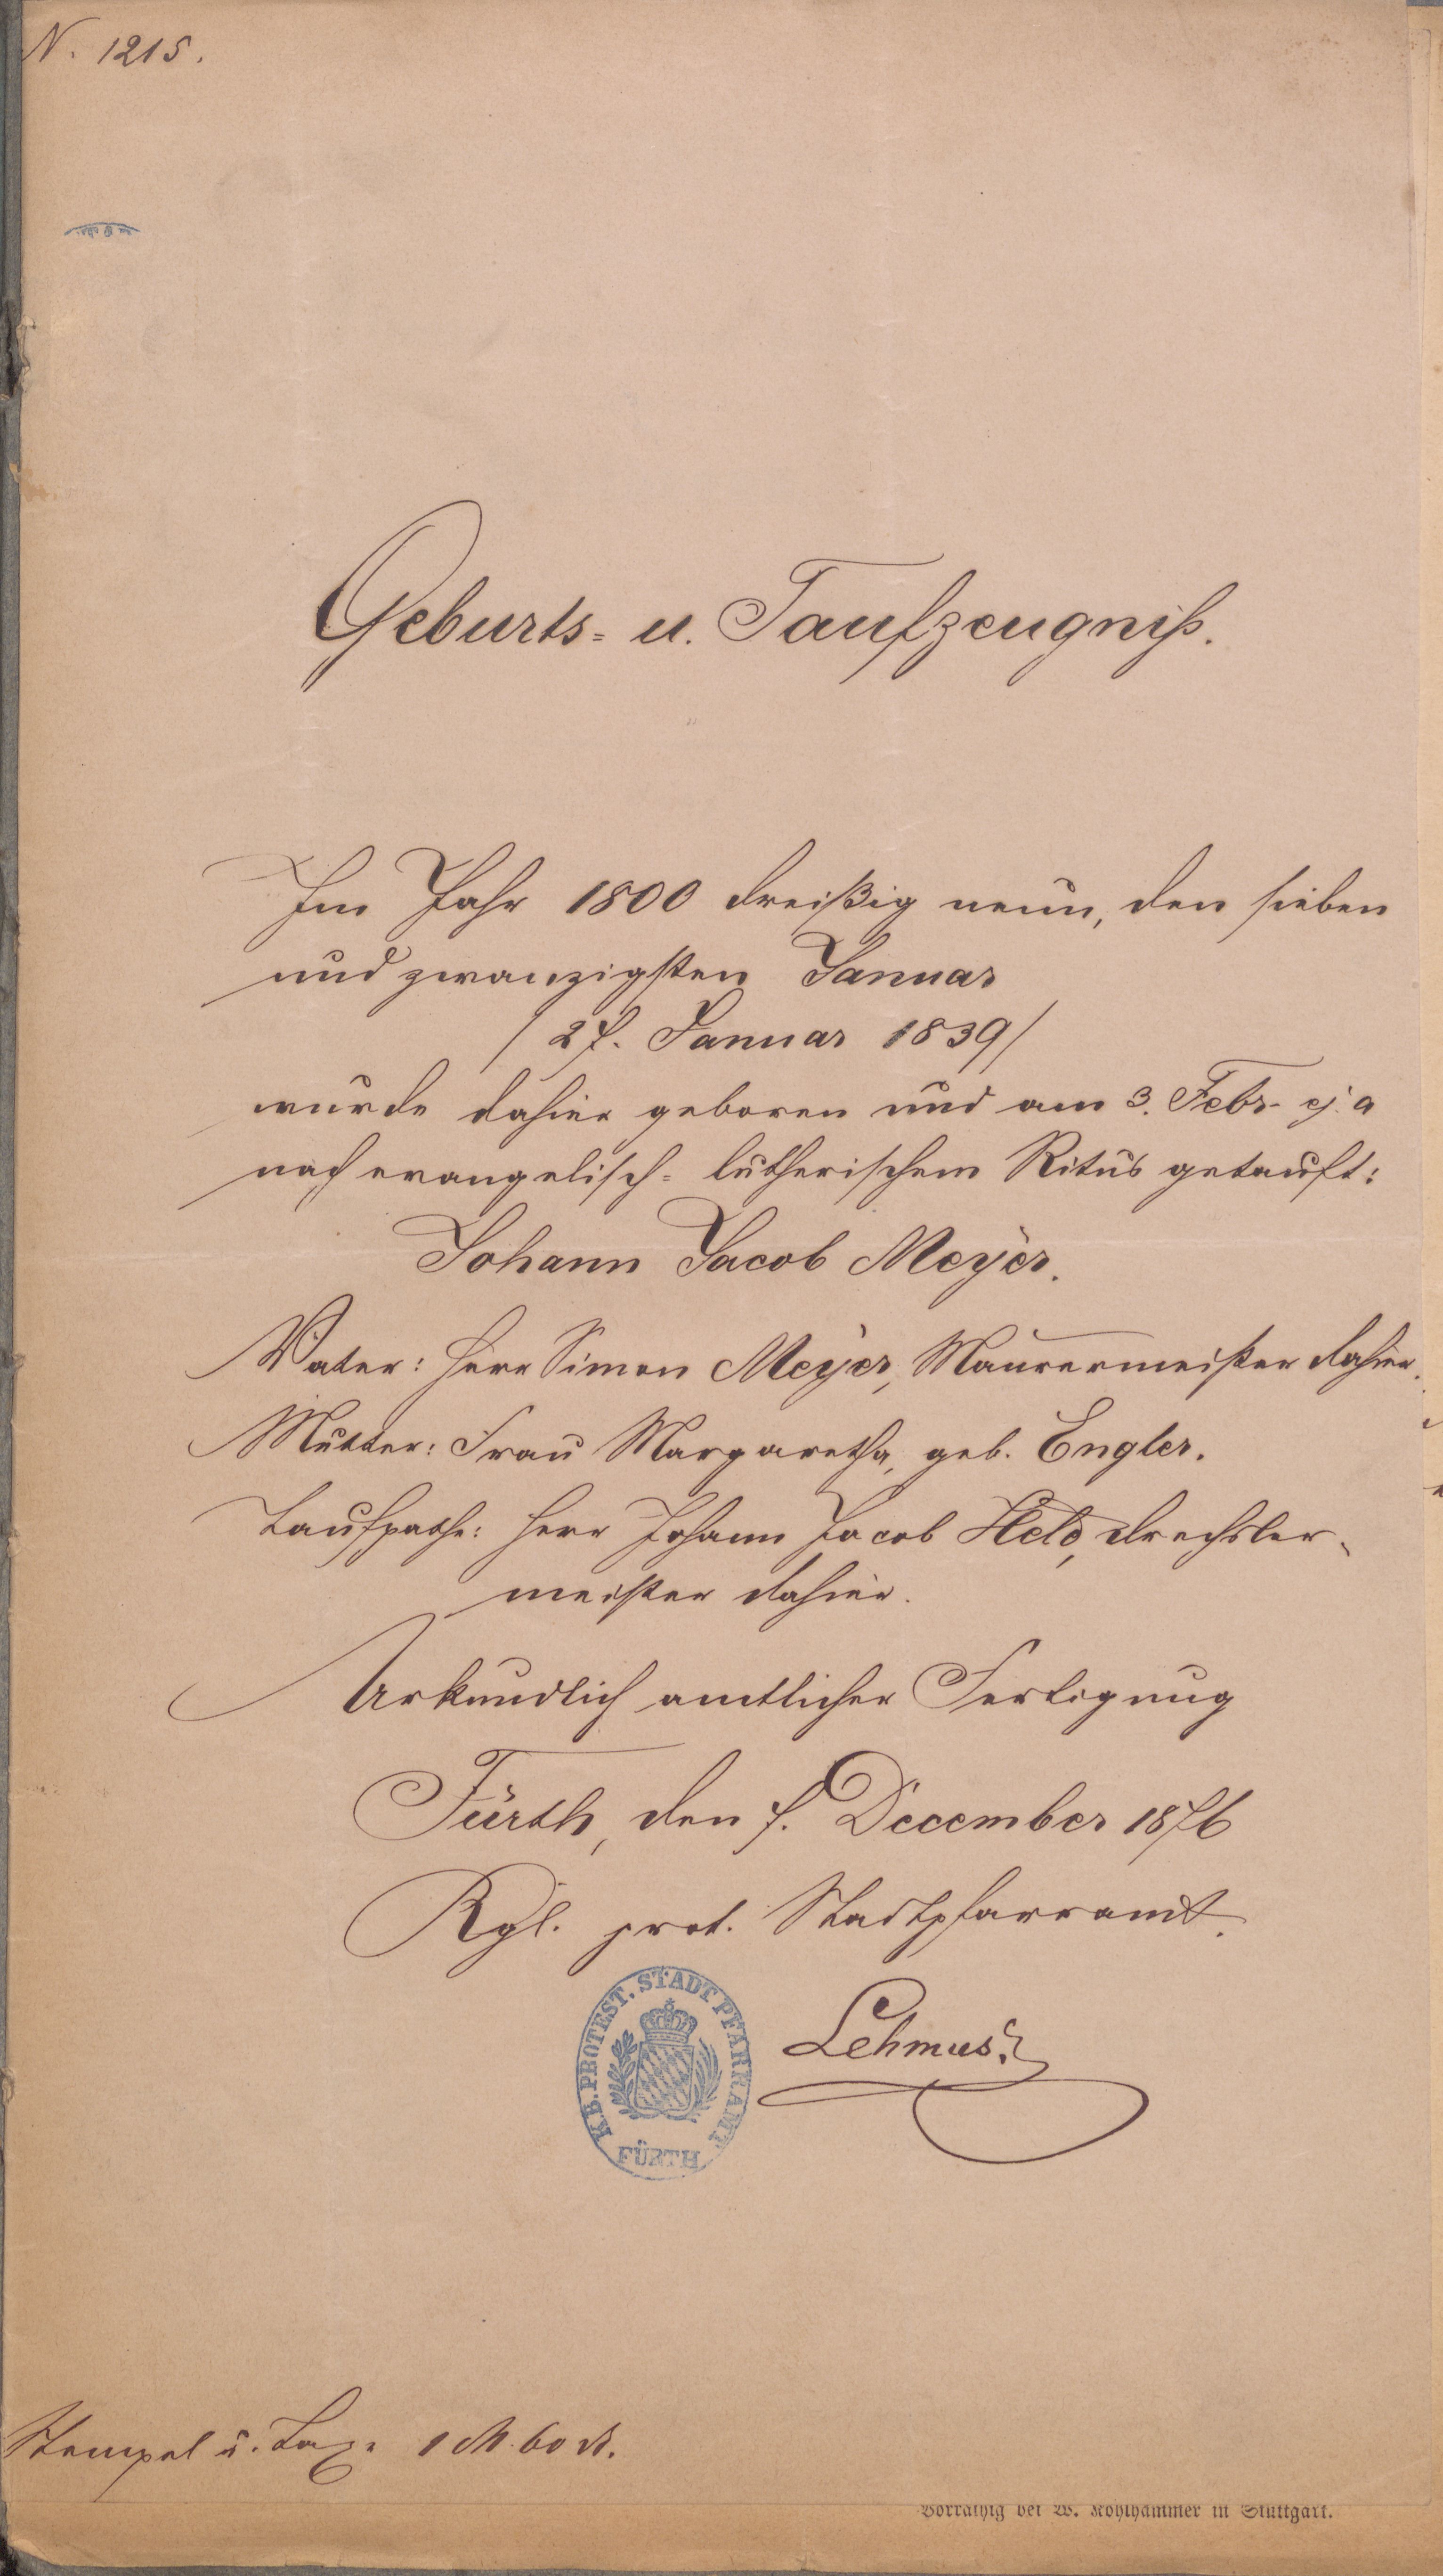 N. 1215.
Geburts- u. Taufzeugniß.
Im Jahr 1800 dreißig neun, den sieben
und zwanzigsten Januar
/27. Januar 1839/
wurde dahier geboren und am 3. Febr. ej. a
nach evangelisch-lutherischem Ritus getauft:
Johann Jacob Meyer.
Vater: Herr Simon Meyer, Maurermeister dahier.
Mutter: Frau Margaretha, geb. Engler.
Taufpathe: Herr Johann Jacob Held, Drechsler-
meister dahier.
Urkundlich amtlicher Fertigung
Fürth, den 7. December 1876
Kgl. prot. Stadtpfarramt.
K.B. PROTEST. STADT PFARRAMT
FÜRTH
Lehmus.
Stempel u. Taxe 1 M. 60 d.
Vorräthig bei W. Kohlhammer in Stuttgart.